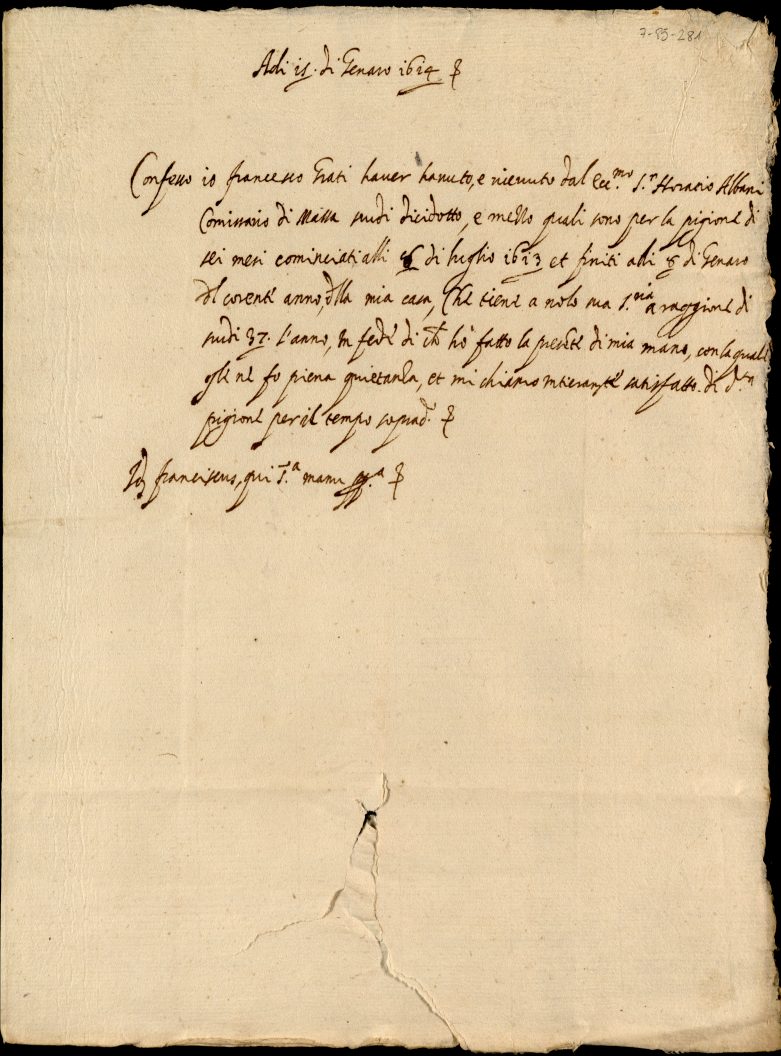 7-85-281
Adi 15. di Genaro 1614
Confesso io francesco Grati haver havuto, e ricevuto dal Ecc.mo S.r Horatio Albani
Comissario di Massa scudi dicidotto, e mezzo quali sono per la pigione di
sei mesi cominciati alli di luglio 1613 et finiti alli 8 di Genaro
del corente anno, della mia casa, che tiene a nolo sua S.ria a raggione di
scudi 37. l'anno, In fede di che ho fatto la presete di mia mano, con la quale
gli ne fo piena quietanza, et mi chiamo satisfatto di d.ta
pigione per il tempo soprad.
franciscus, qui S.a manu